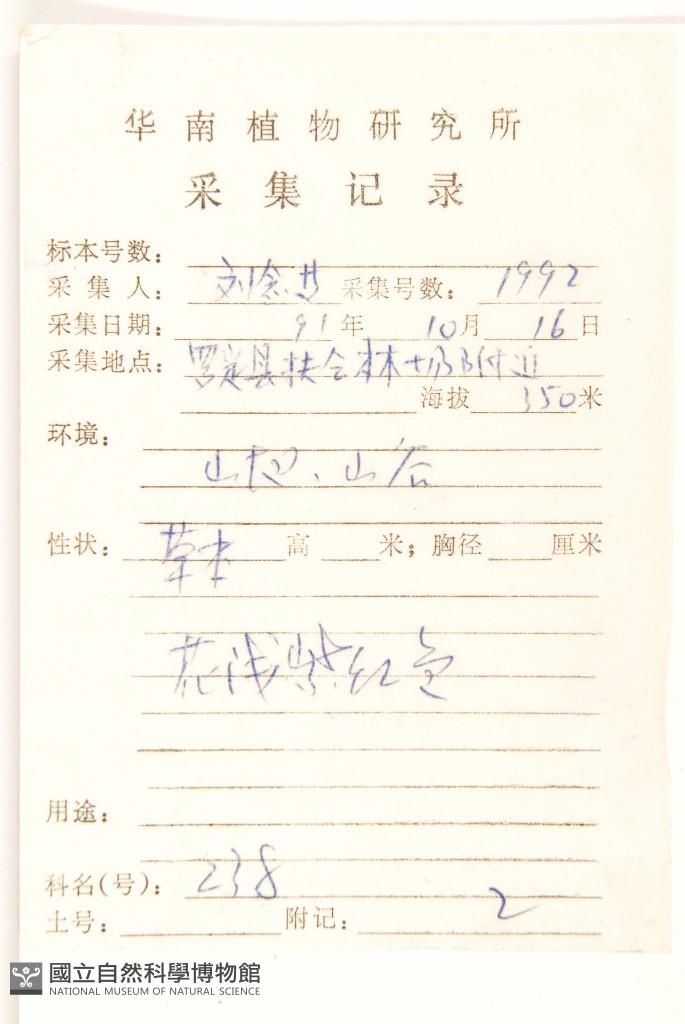 华南植物研究所
采集记录
标本号数:
采集人: 刘念 采集号数: 1992
采集日期: 91年 10月 16日
采集地点: 罗定县扶合林场附近
海拔 350米
环境:
山地、山谷
性状: 草本 高 米; 胸径 厘米
花浅紫红色
用途:
科名(号): 238
土号: 附记: 2
國立自然科學博物館
NATIONAL MUSEUM OF NATURAL SCIENCE